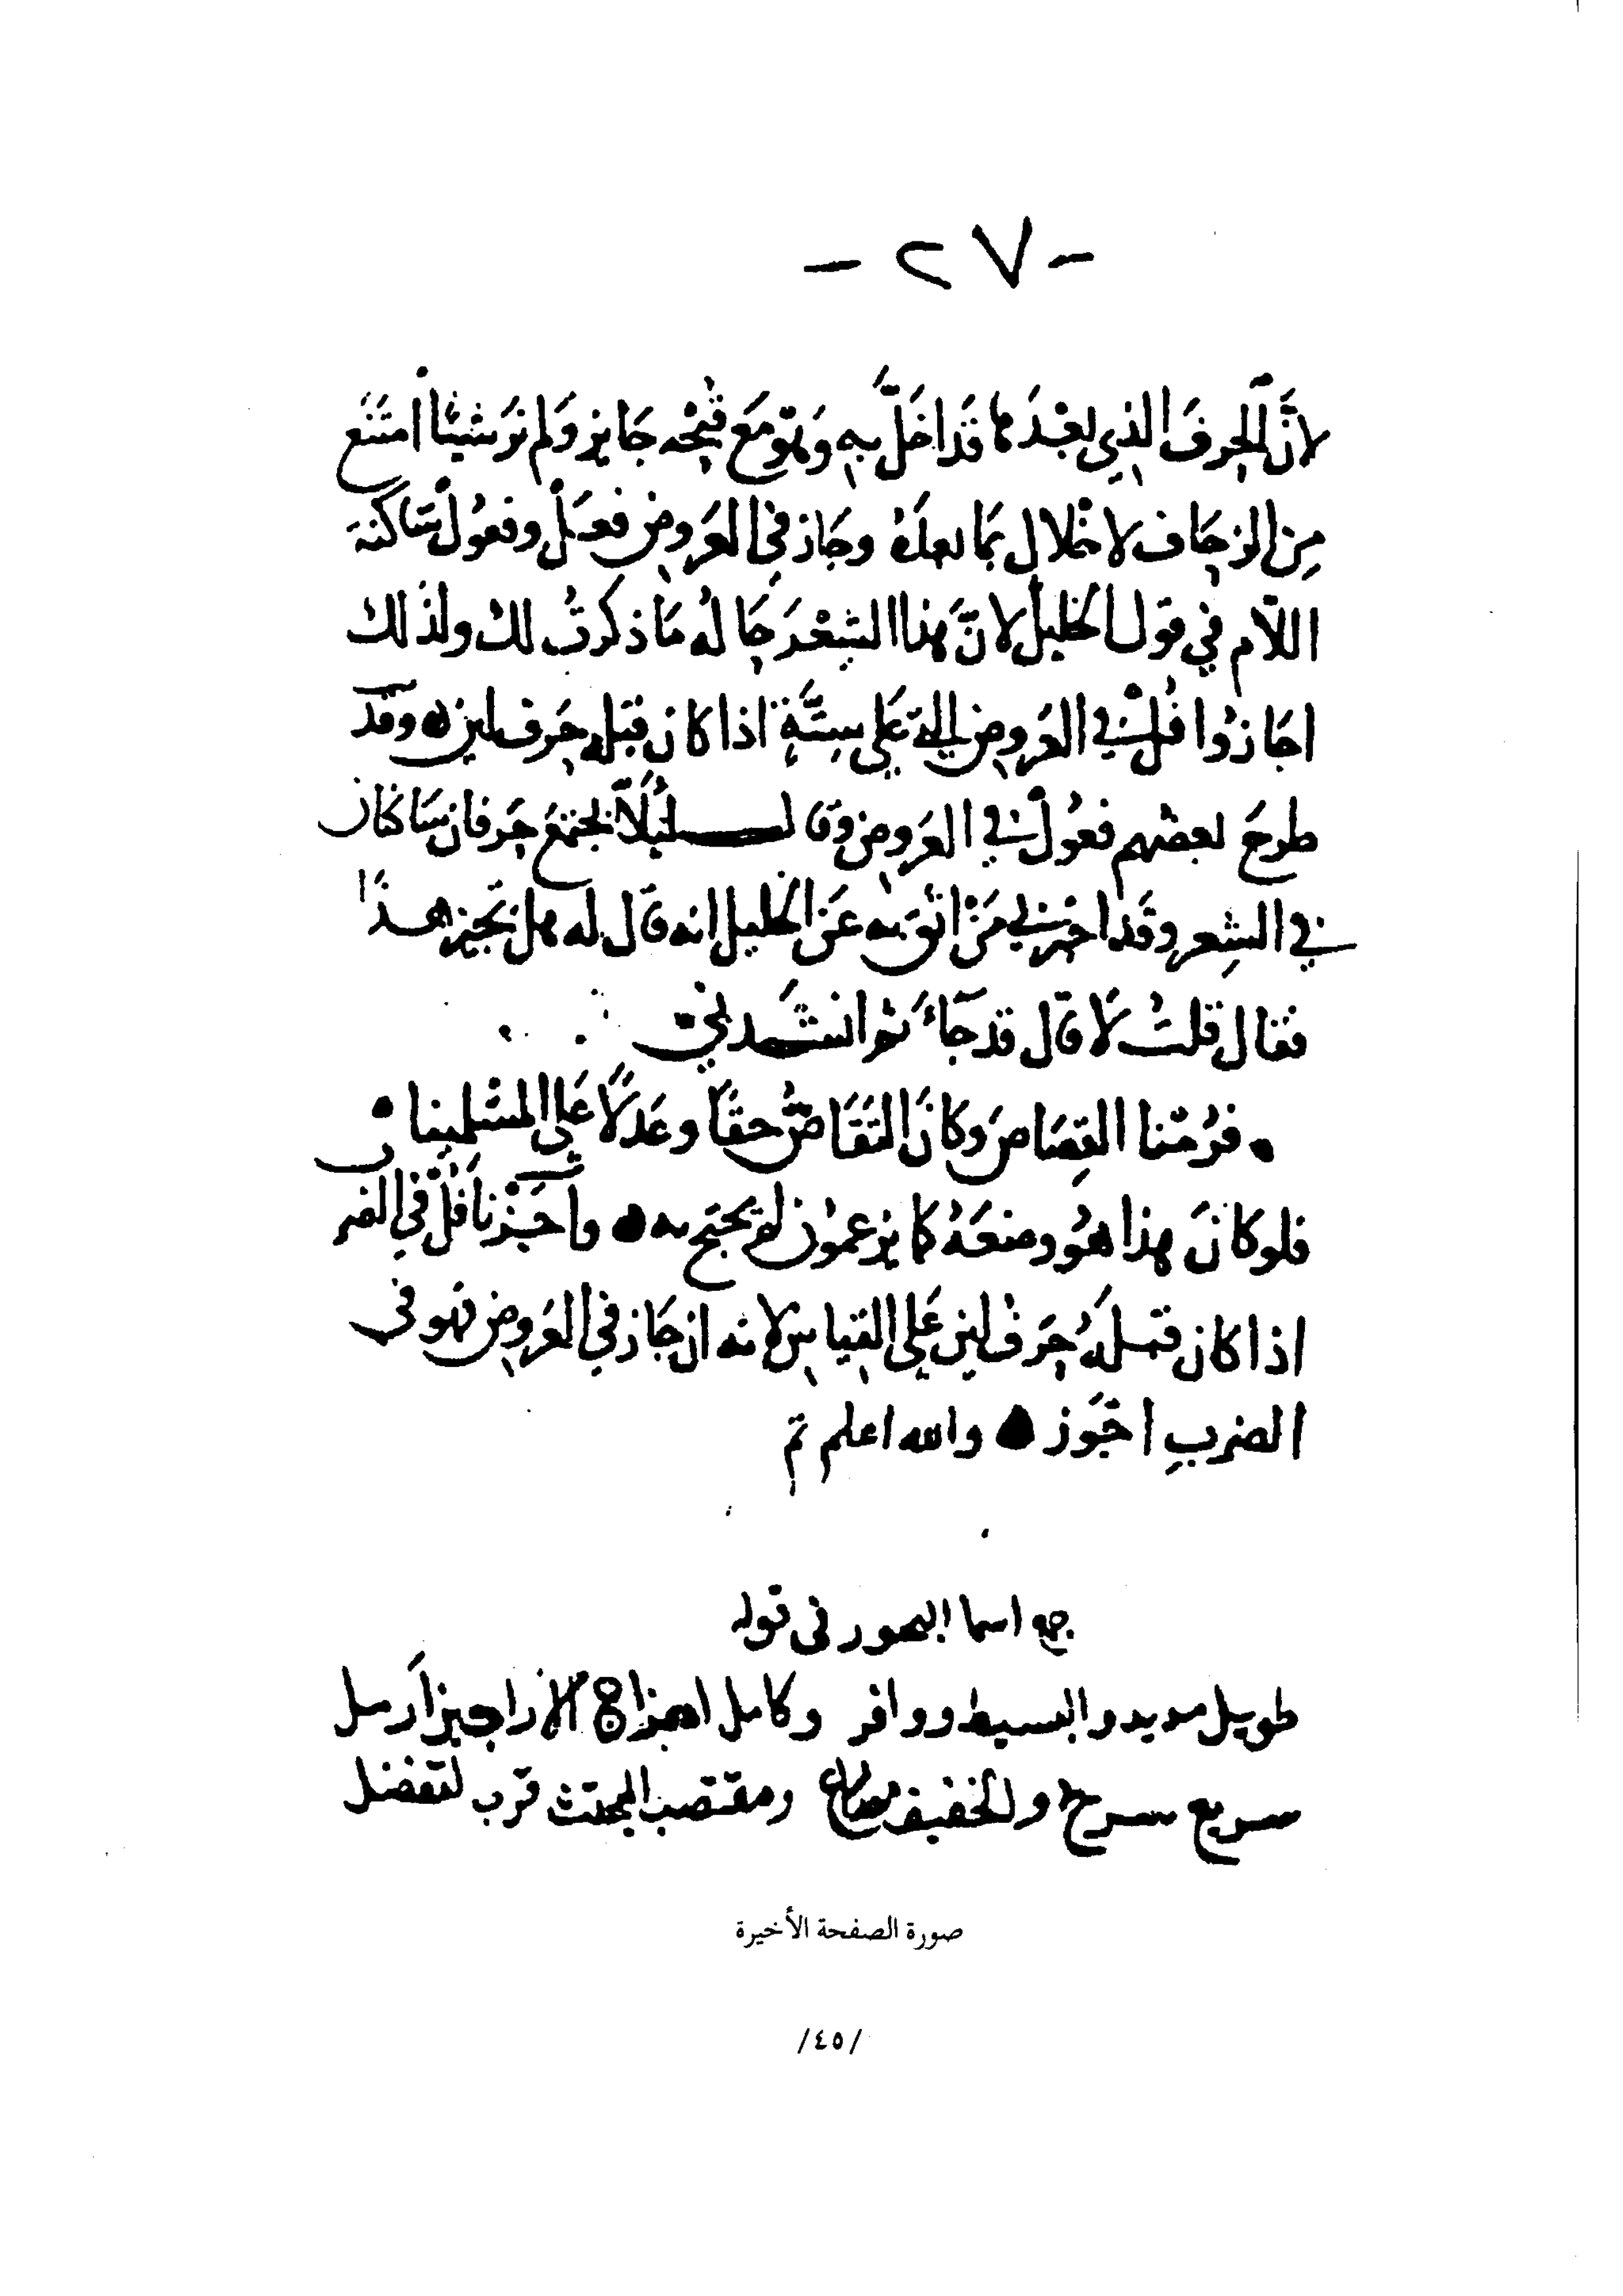 - ٢٧ -
لانَّ الحرفَ الذي بعْدَ ها قَد اخَلَّ بهِ وَهو مَع قبْحه جَايز وَلم نرَ شيئًا امتنَع
مِن الزحَاف لاخْلال بمَا بعدَهُ وجَاز في العَروض فعَلْ وفعُولْ سَاكنة
اللّام في قول الخليل لانّ هَذا الشعْرَ حَالهُ مَا ذكرتُ لكَ ولذلك
اجَازوا فُلْ في العَروض على ستَّة اذا كان قبله حَرف لين وقد
طرحَ بعضهم فعُولْ في العَروض وقال لئَلّا يجتمعَ حَرفان سَاكنان
في الشِعر وقَد اخبرني مَنْ اثق به عَن الخليل انه قَال له هل تجيز هذا
فقال قلتُ لَا قال قد جَاءَ ثم انشَدني
فرُمْنا القِصَاصَ وكانَ التقَاصُّ حقًّا وعَدلًا عَلى المسْلمينا
فلو كانَ هذا هُوَ وضعَهُ كما يزعمُون لم يحتج به واجَزْنا فُلْ في الضر
اذا كان قبلَهُ حَرفُ لين عَلى القياسِ لانه ان جَاز في العَروض فهو في
الضربِ اجْوَز والله اعلم تم
جمع اسما البحور في قوله
طويل مديد والبسيط ووافر وكامل اهزاج الاراجيز أَرمل
سريع سرح والخفيف مضارع ومقتضب المجتث قرب لتفضل
صورة الصفحة الأخيرة
/٤٥/